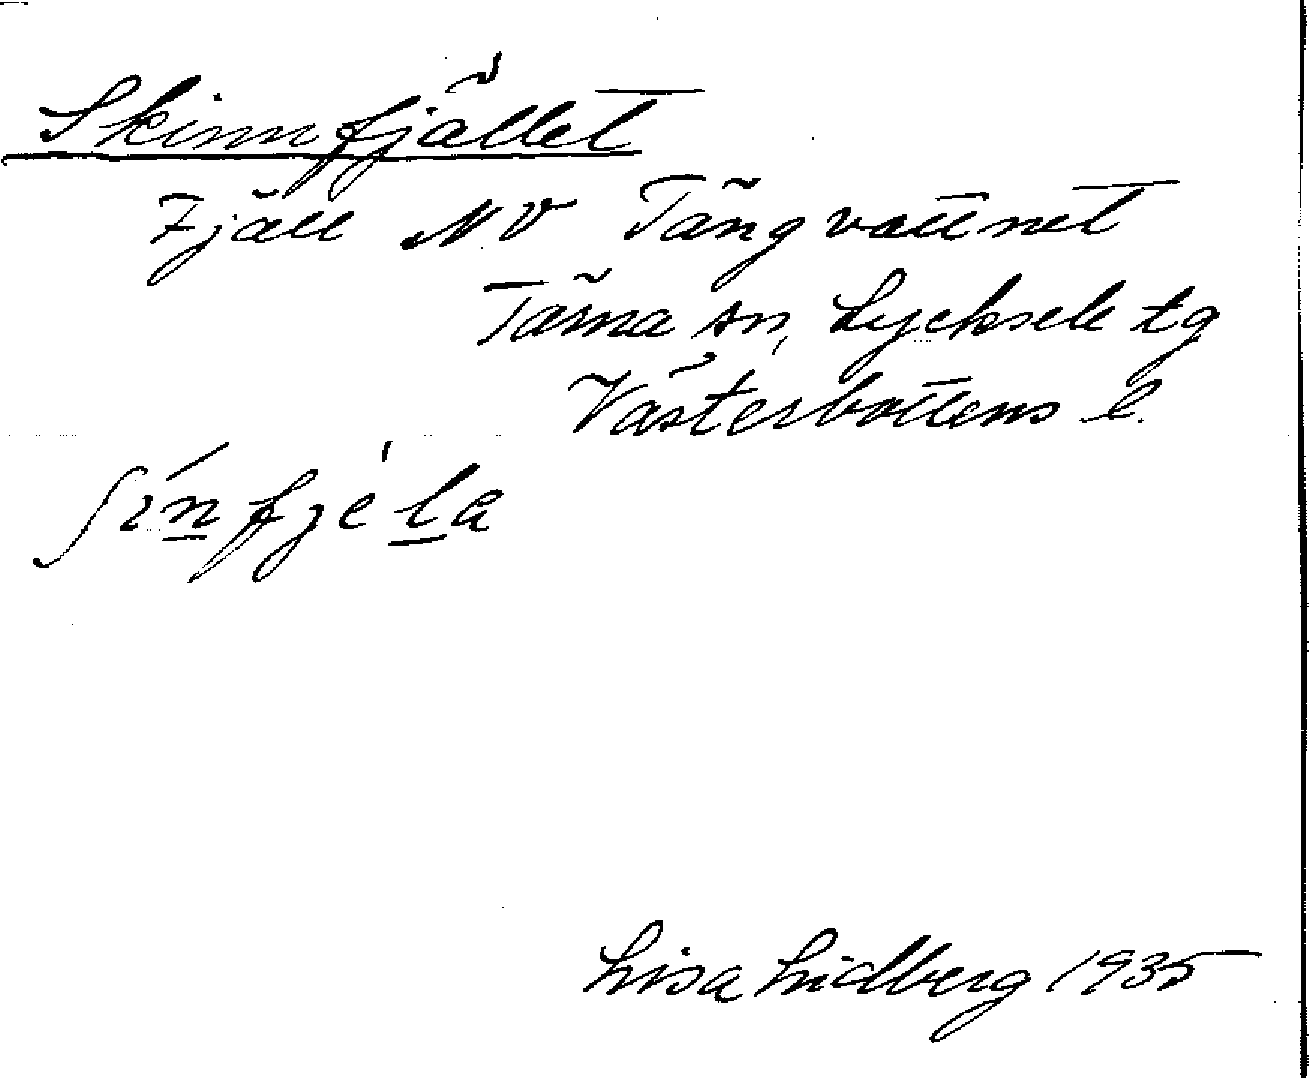 Skinnfjället
Fjäll NV Tängvattnet
Tärna sn, Lycksele tg
Västerbottens l.
ʃinfjela
Lisa Lidberg 1935